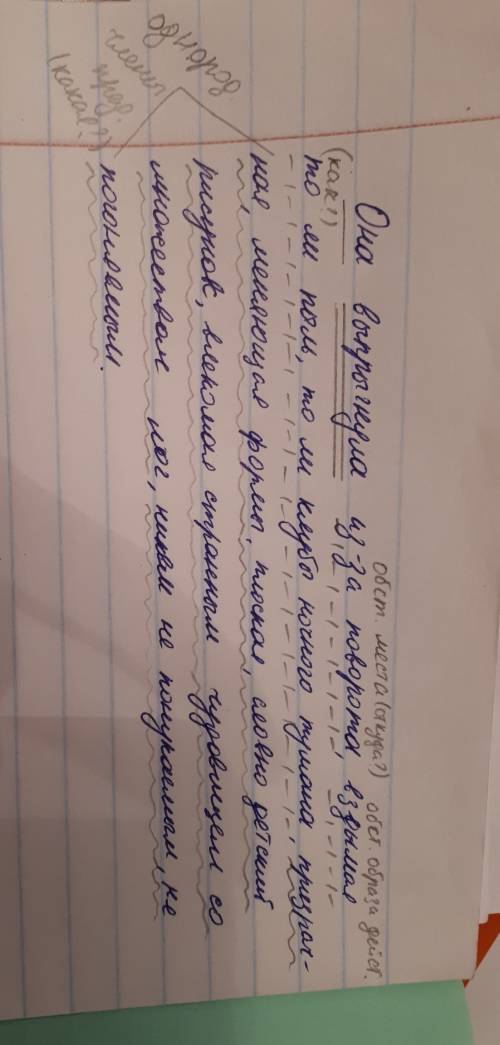 обст. места (откуда?) обст. образа дейст.
Она выпрыгнула из-за поворота, вздымая
(как?)
то ли пыль, то ли клубы ночного тумана, призрач-
ная, меняющая формы, плоская, словно детский
рисунок, влекомая странным чудовищем со
множеством ног, никем не понукаемым, не
погоняемым.
однород.
члены
пред.
(какая?)